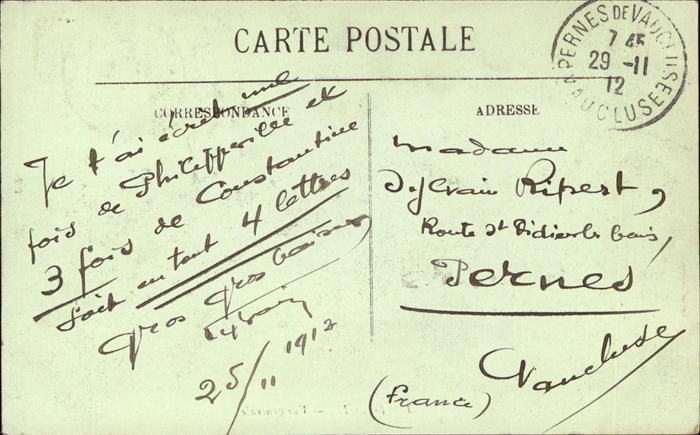 CARTE POSTALE
PERNES DE VAUCLUSE
7 45
29 -11
12
VAUCLUSE
CORRESPONDANCE
ADRESSE
Je t'ai écrit une
fois de Philippeville et
3 fois de Constantine
soit en tout 4 lettres
Gros gros baisers
Sylvain
25/11 1912
Madame
Sylvain Ripert,
Route St Didier les bains,
Pernes
Vaucluse
(France)